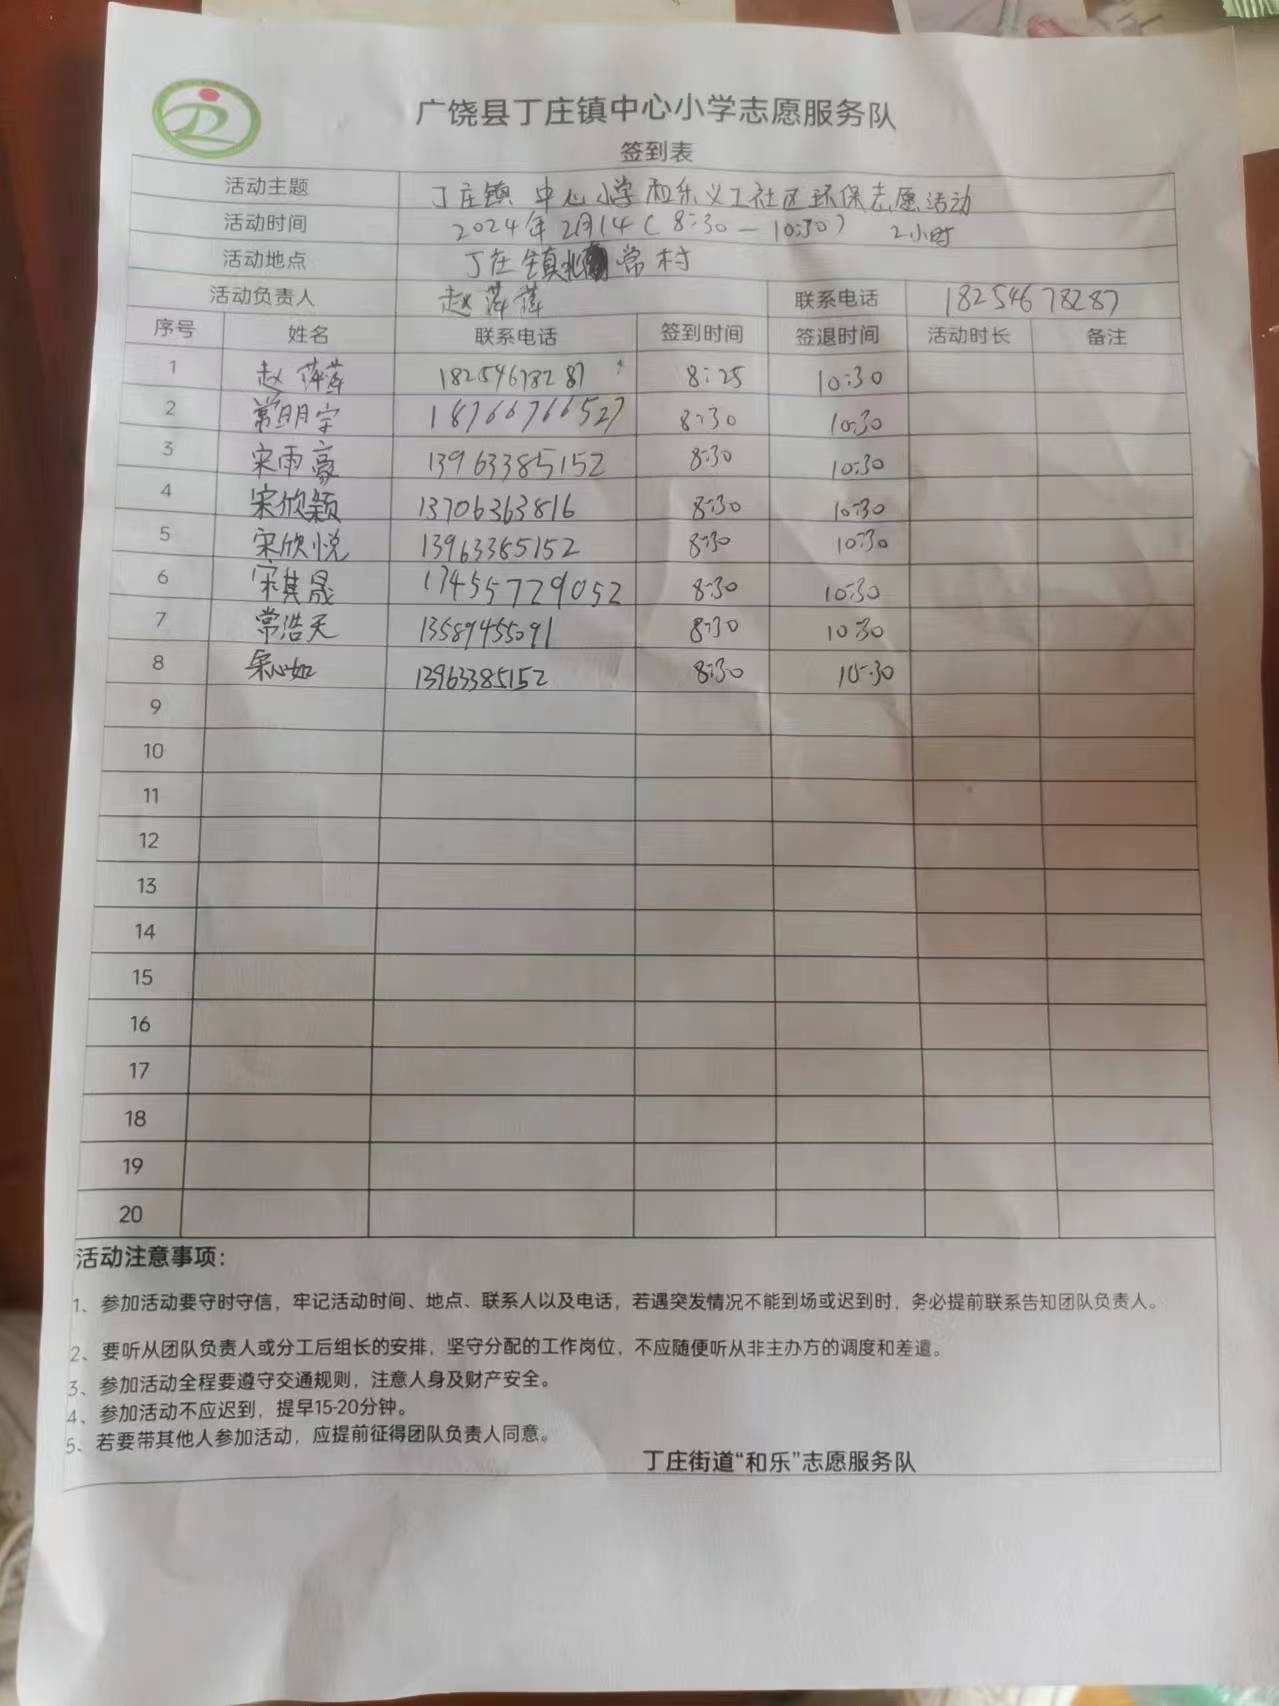 广饶县丁庄镇中心小学志愿服务队
签到表
活动主题 丁庄镇中心小学和乐义工社区环保志愿活动
活动时间 2024年2月14(8:30-10:30) 2小时
活动地点 丁庄镇北常村
活动负责人 赵萍萍 联系电话 18254678287
序号 姓名 联系电话 签到时间 签退时间 活动时长 备注
1 赵萍萍 18254678287 8:25 10:30
2 常明宇 18766766527 8:30 10:30
3 宋雨豪 13963385152 8:30 10:30
4 宋欣颖 13706363816 8:30 10:30
5 宋欣悦 13963385152 8:30 10:30
6 宋其晟 17455729052 8:30 10:30
7 常浩天 13589455091 8:30 10:30
8 宋心如 13963385152 8:30 10:30
9
10
11
12
13
14
15
16
17
18
19
20
活动注意事项:
1、参加活动要守时守信，牢记活动时间、地点、联系人以及电话，若遇突发情况不能到场或迟到时，务必提前联系告知团队负责人。
2、要听从团队负责人或分工后组长的安排，坚守分配的工作岗位，不应随便听从非主办方的调度和差遣。
3、参加活动全程要遵守交通规则，注意人身及财产安全。
4、参加活动不应迟到，提早15-20分钟。
5、若要带其他人参加活动，应提前征得团队负责人同意。
丁庄街道“和乐”志愿服务队